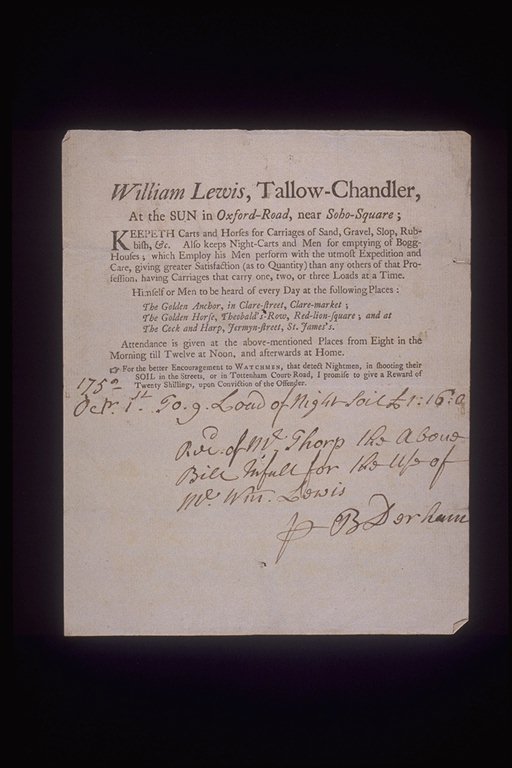 William Lewis, Tallow-Chandler,
At the SUN in Oxford-Road, near Soho-Square;
KEEPETH Carts and Horſes for Carriages of Sand, Gravel, Slop, Rub-
biſh, &c. Alſo keeps Night-Carts and Men for emptying of Bogg-
Houſes; which Employ his Men perform with the utmoſt Expedition and
Care, giving greater Satisfaction (as to Quantity) than any others of that Pro-
feſſion, having Carriages that carry one, two, or three Loads at a Time.
Himſelf or Men to be heard of every Day at the following Places:
The Golden Anchor, in Clare-ſtreet, Clare-market;
The Golden Horſe, Theobald's-Row, Red-lion-ſquare; and at
The Cock and Harp, Jermyn-ſtreet, St. James's.
Attendance is given at the above-mentioned Places from Eight in the
Morning till Twelve at Noon, and afterwards at Home.
☞ For the better Encouragement to WATCHMEN, that detect Nightmen, in ſhooting their
SOIL in the Streets, or in Tottenham Court-Road, I promiſe to give a Reward of
Twenty Shillings, upon Conviction of the Offender.
Octr. 1st. To 9 Load of Night Soil £1:16:0
Recd. of Mr Thorp the Above
Bill Infull for the Use of
Mr. Wm. Lewis
B Derham